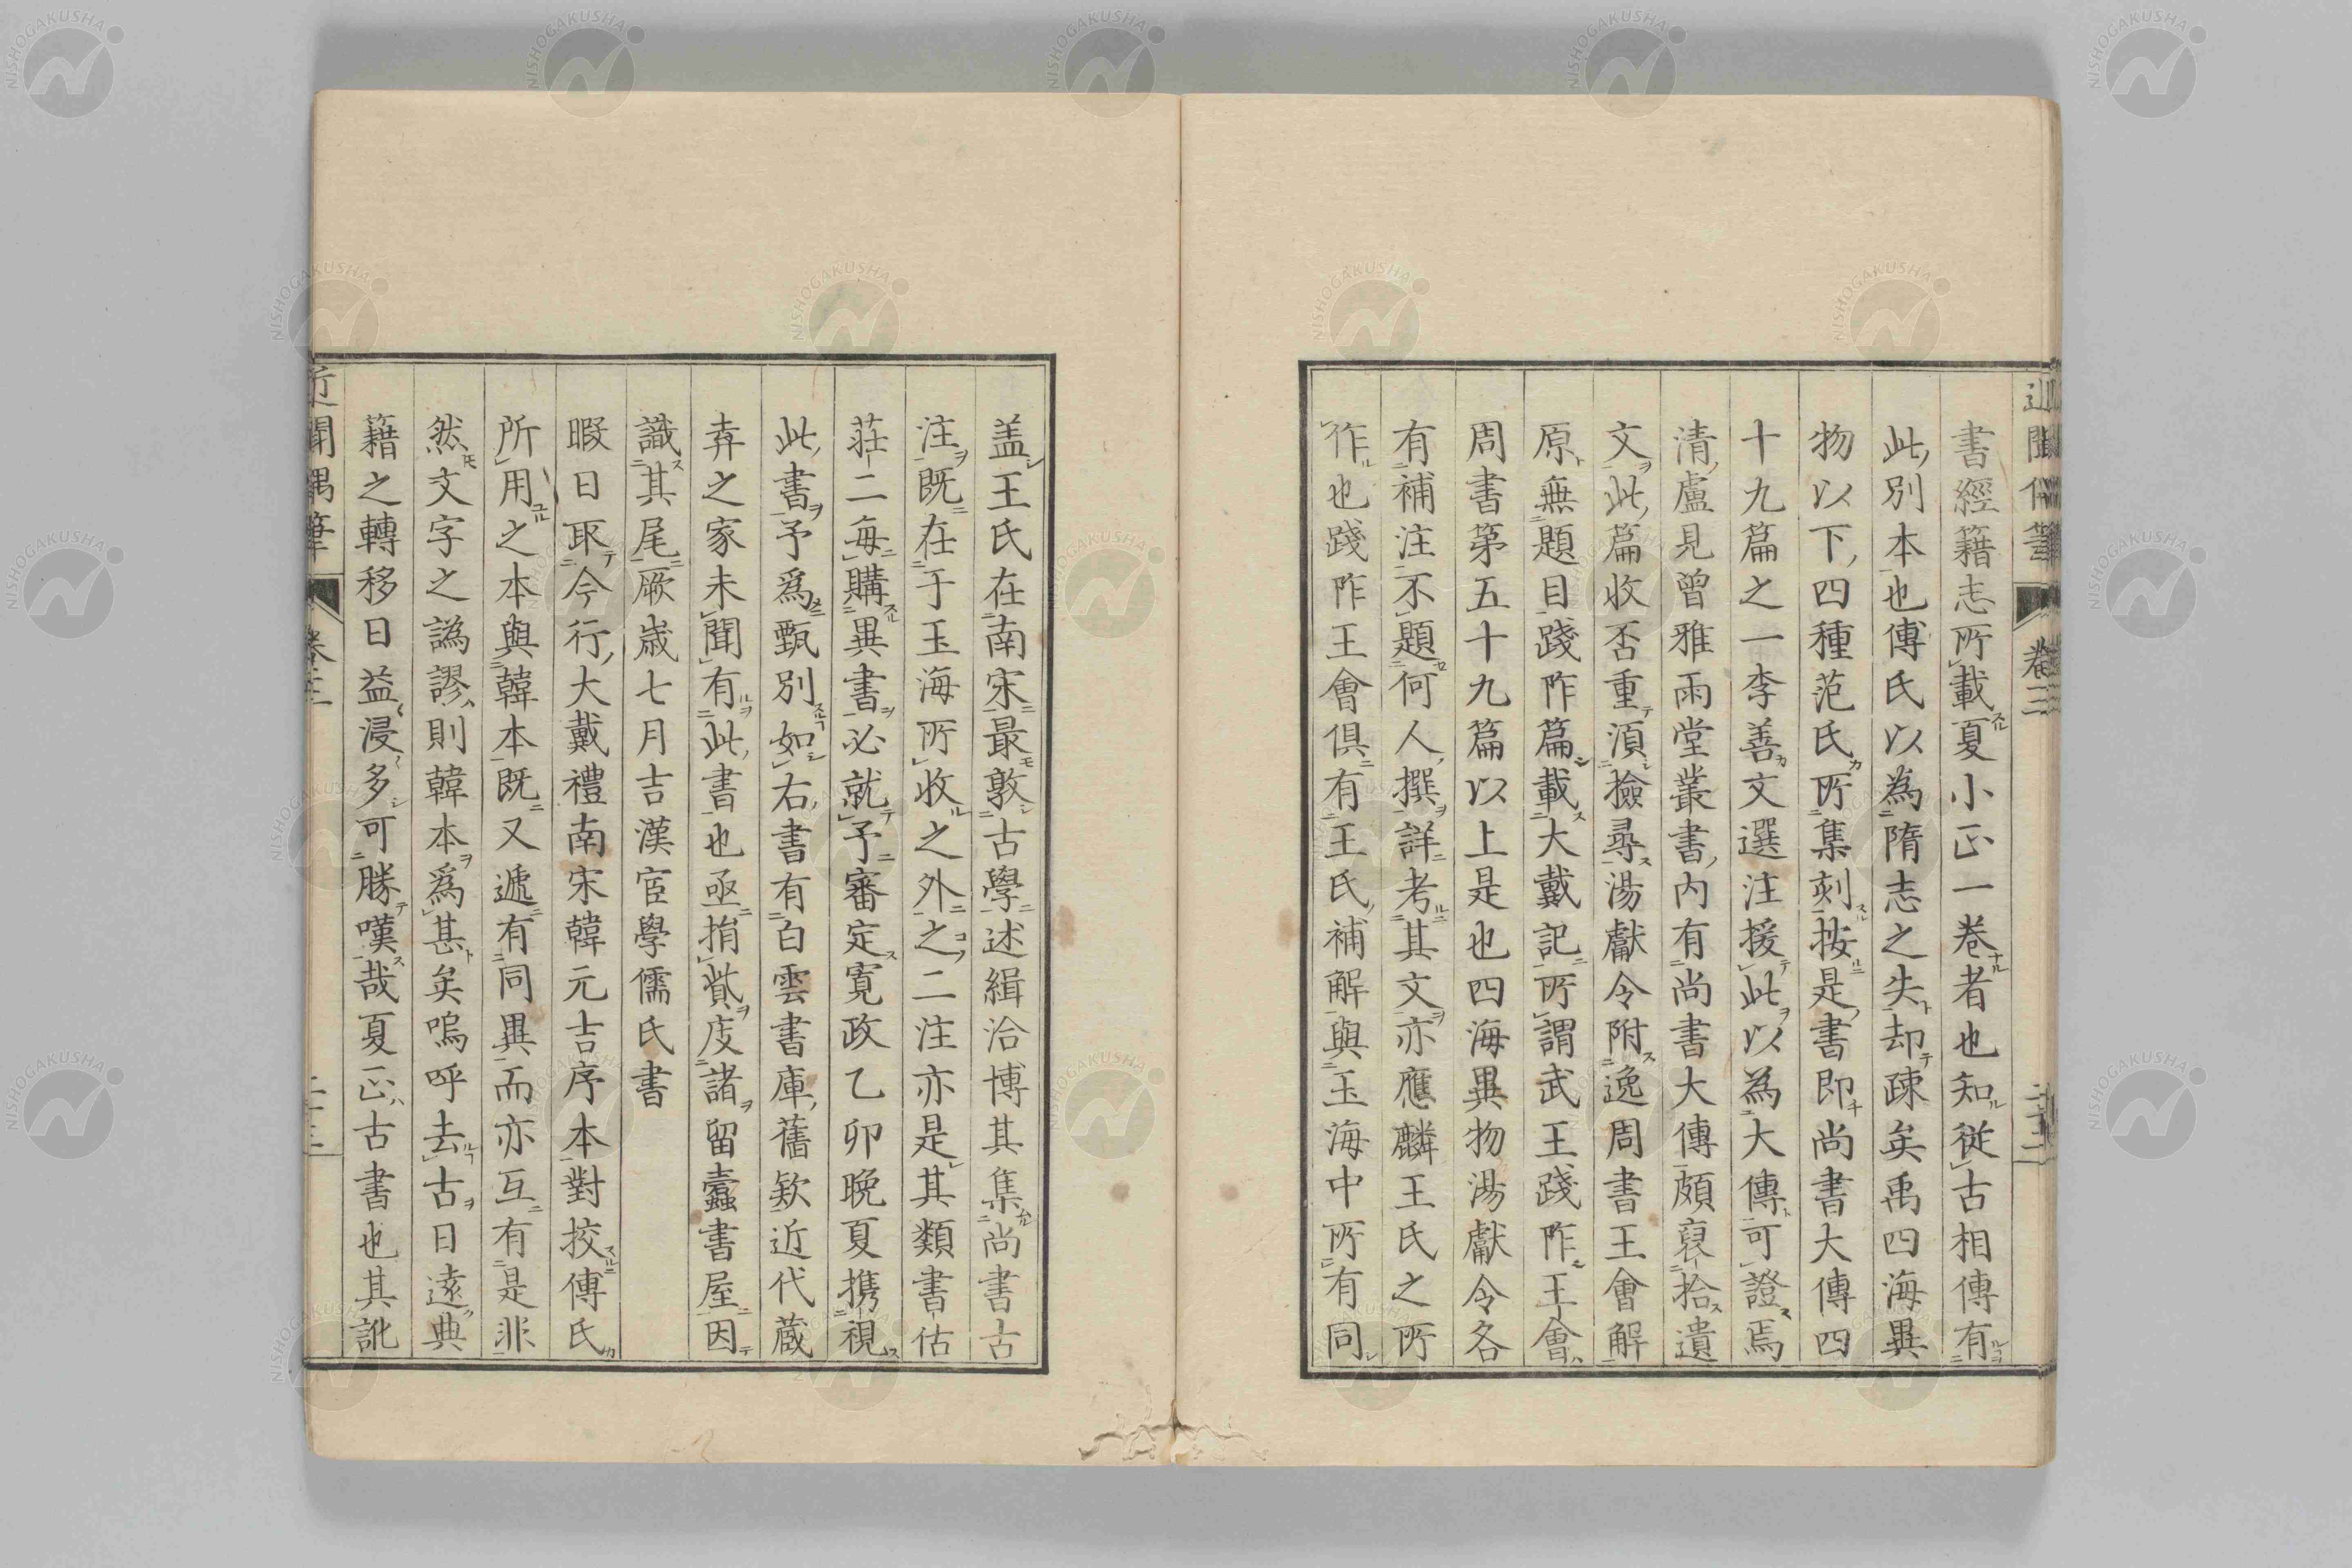 書經籍志所載夏小正一卷者也知従古相傳有
此別本也傳氏以為隋志之失却疎矣禹四海異
物以下四種范氏所集刻按是書即尚書大傳四
十九篇之一李善文選注援此以為大傳可證焉
清盧見曾雅雨堂叢書内有尚書大傳頗裒拾遺
文此篇收否重湏撿尋湯獻令附逸周書王會解
原無題目踐阼篇載大戴記所謂武王踐阼王會
周書第五十九篇以上是也四海異物湯獻令各
有補注不題何人撰詳考其文亦應麟王氏之所
作也踐阼王會俱有王氏補解與玉海中所有同
盖王氏在南宋最敦古學述緝洽博其集尚書古
注既在于玉海所收之外之二注亦是其類書估
莊二每購異書必就予審定寛政乙卯晩夏携視
此書予爲甄別如右書有白雲書庫舊欵近代蔵
弆之家未聞有此書也亟捐貲庋諸留蠹書屋因
識其尾厥歳七月吉漢宦學儒氏書
暇日取今行大戴禮南宋韓元吉序本對挍傳氏
所用之本與韓本既又遞有同異而亦互有是非
然文字之譌謬則韓本爲甚矣嗚呼去古日逺典
籍之轉移日益浸多可勝嘆哉夏正古書也其訛
近聞偶筆
卷三
NISHOGAKUSHA